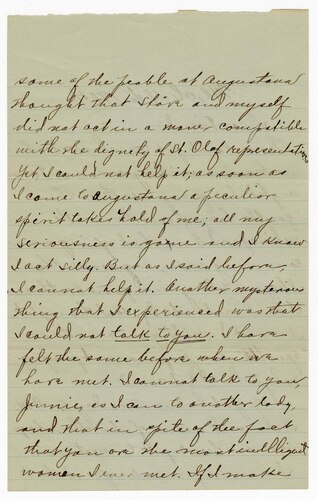 some of the people at Augustana
thought that Stöve and myself
did not act in a maner compatible
with the dignity of St. Olaf representatives
Yet I could not help it; as soon as
I come to Augustana a peculior
spirit takes hold of me; all my
seriousness is gone and I know
I act silly. But as I said before,
I cannot help it. Another mysterious
thing that I experienced was that
I could not talk to you. I have
felt the same before when we
have met. I cannot talk to you,
Jennie, as I can to another lady,
and that in spite of the fact
that you are the most intelligent
women I ever met. If I make